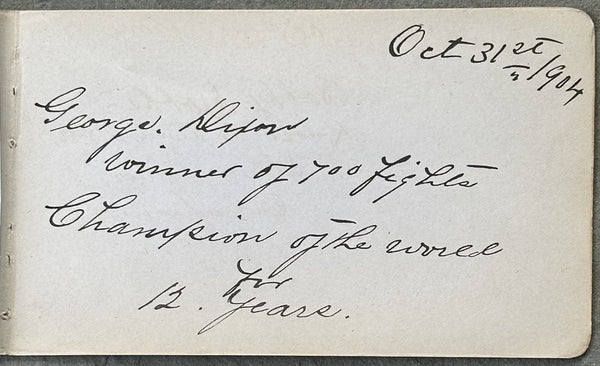 Oct 31st 1904
George. Dixon
Winner of 700 fights
Champion of the world
for
12. Years.